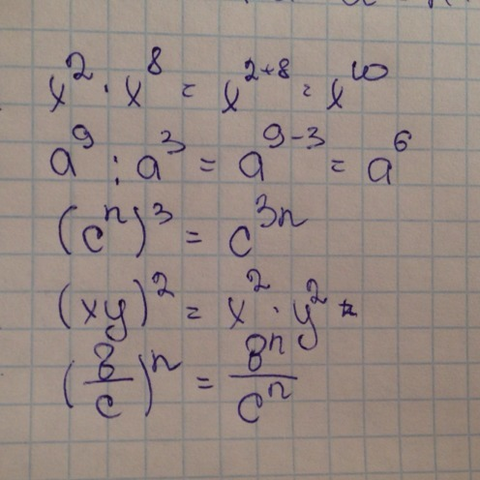 x² · x⁸ = x²⁺⁸ = x¹⁰
a⁹ : a³ = a⁹⁻³ = a⁶
(cⁿ)³ = c³ⁿ
(xy)² = x² · y²
(в/c)ⁿ = вⁿ/cⁿ